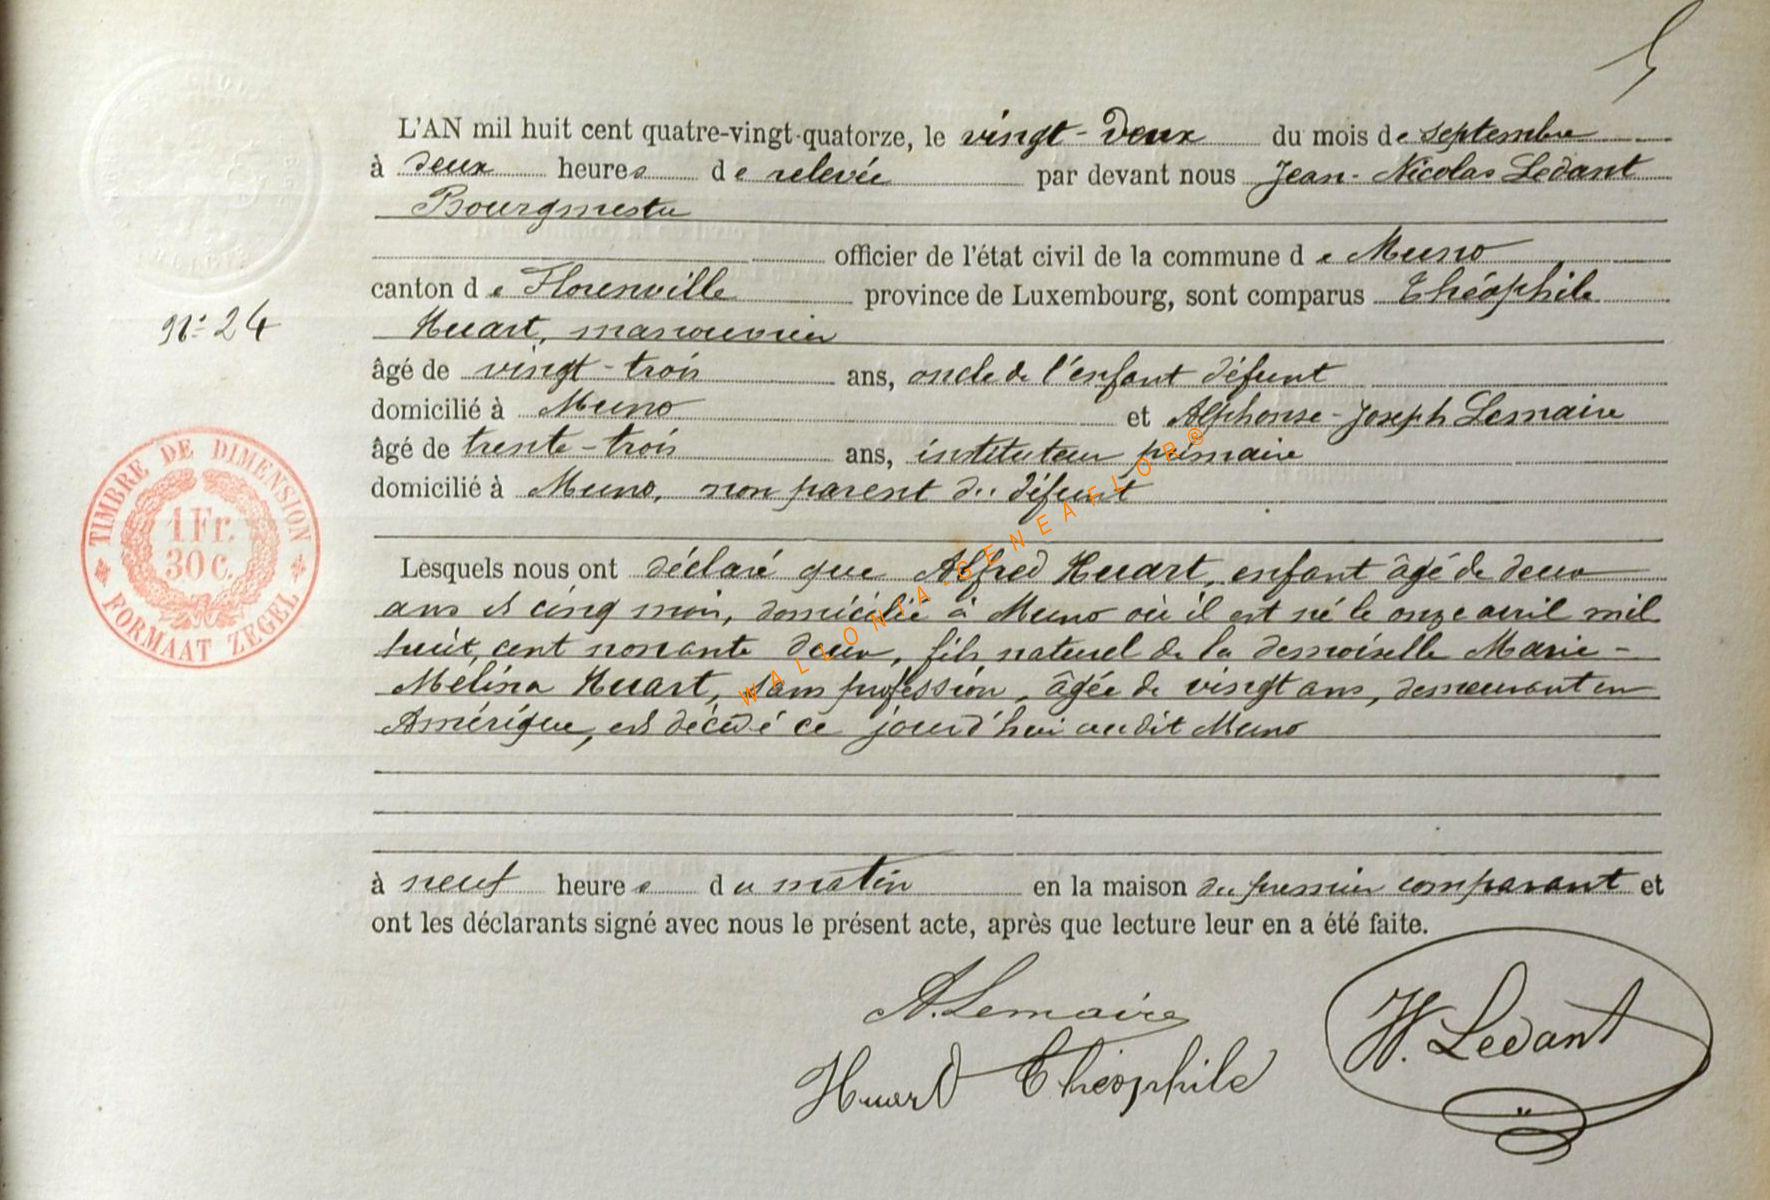 5
L'AN mil huit cent quatre-vingt-quatorze, le vingt-deux du mois de septembre
à deux heures de relevée par devant nous Jean-Nicolas Ledant
Bourgmestre
officier de l'état civil de la commune de Muno
canton de Florenville province de Luxembourg, sont comparus Théophile
Huart, manouvrier
âgé de vingt-trois ans, oncle de l'enfant défunt
domicilié à Muno et Alphonse-Joseph Lemaire
âgé de trente-trois ans, instituteur primaire
domicilié à Muno, non parent du défunt
Lesquels nous ont déclaré que Alfred Huart, enfant âgé de deux
ans et cinq mois, domicilié à Muno où il est né le onze avril mil
huit cent nonante deux, fils naturel de la demoiselle Marie-
Mélina Huart, sans profession, âgée de vingt ans, demeurant en
Amérique, est décédé ce jourd'hui audit Muno
à neuf heures du matin en la maison du premier comparant et
ont les déclarants signé avec nous le présent acte, après que lecture leur en a été faite.
A. Lemaire
Huart Théophile
N. Ledant
N° 24
TIMBRE DE DIMENSION
1 Fr.
30 c.
FORMAAT ZEGEL
WALLONIA-GENEAFLOR©